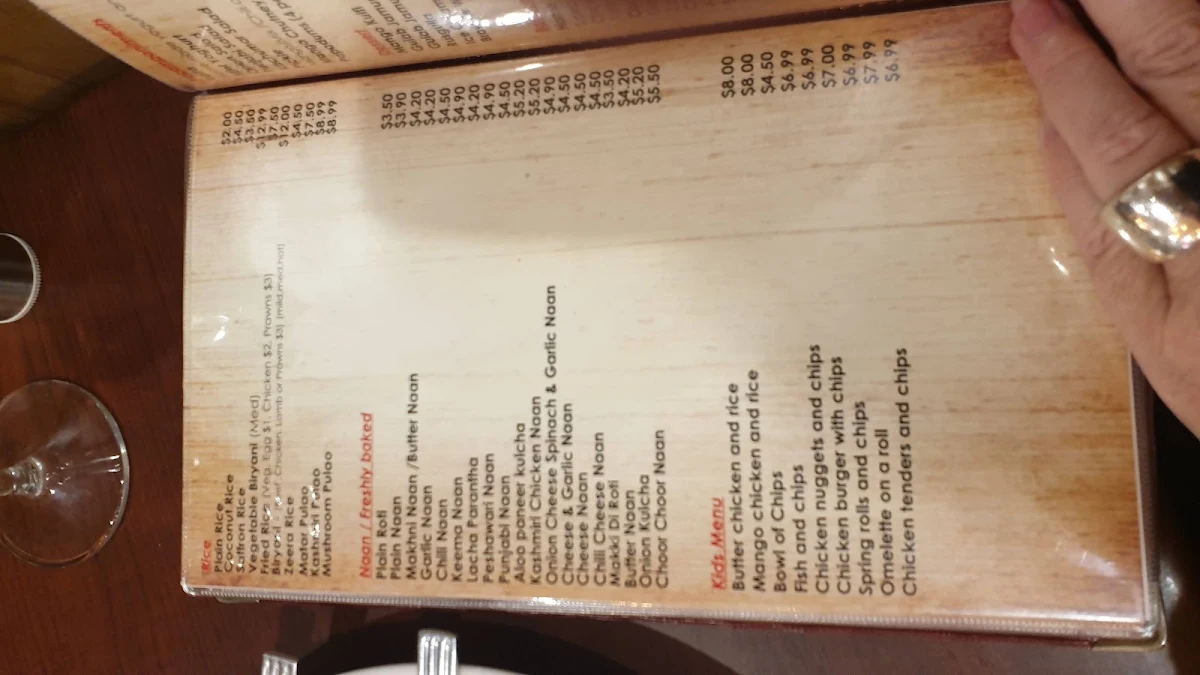 Accompaniments
Dessert
Mango Kulfi
Gulab Jamun
Rice
Plain Rice $2.00
Coconut Rice $4.50
Saffron Rice $3.50
Vegetable Biryani (Med) $12.99
Fried Rice (Veg, Egg $1, Chicken $2, Prawns $3) $7.50
Biryani Chicken, Lamb or Prawns $3) (mild,med,hot) $12.00
Zeera Rice $4.50
Matar Pulao $7.50
Kashmiri Pulao $8.99
Mushroom Pulao $8.99
Naan / Freshly baked
Plain Roti $3.50
Plain Naan $3.90
Makhni Naan /Butter Naan $4.20
Garlic Naan $4.20
Chili Naan $4.50
Keema Naan $4.90
Lacha Parantha $4.20
Peshawari Naan $4.90
Punjabi Naan $4.50
Aloo paneer kulcha $5.20
Kashmiri Chicken Naan $5.20
Onion Cheese Spinach & Garlic Naan $4.90
Cheese & Garlic Naan $4.50
Cheese Naan $4.50
Chili Cheese Naan $4.50
Makki Di Roti $3.50
Butter Naan $4.20
Onion Kulcha $5.20
Choor Choor Naan $5.50
Kid's Menu
Butter chicken and rice $8.00
Mango chicken and rice $8.00
Bowl of Chips $4.50
Fish and chips $6.99
Chicken nuggets and chips $6.99
Chicken burger with chips $7.00
Spring rolls and chips $6.99
Omelette on a roll $7.99
Chicken tenders and chips $6.99